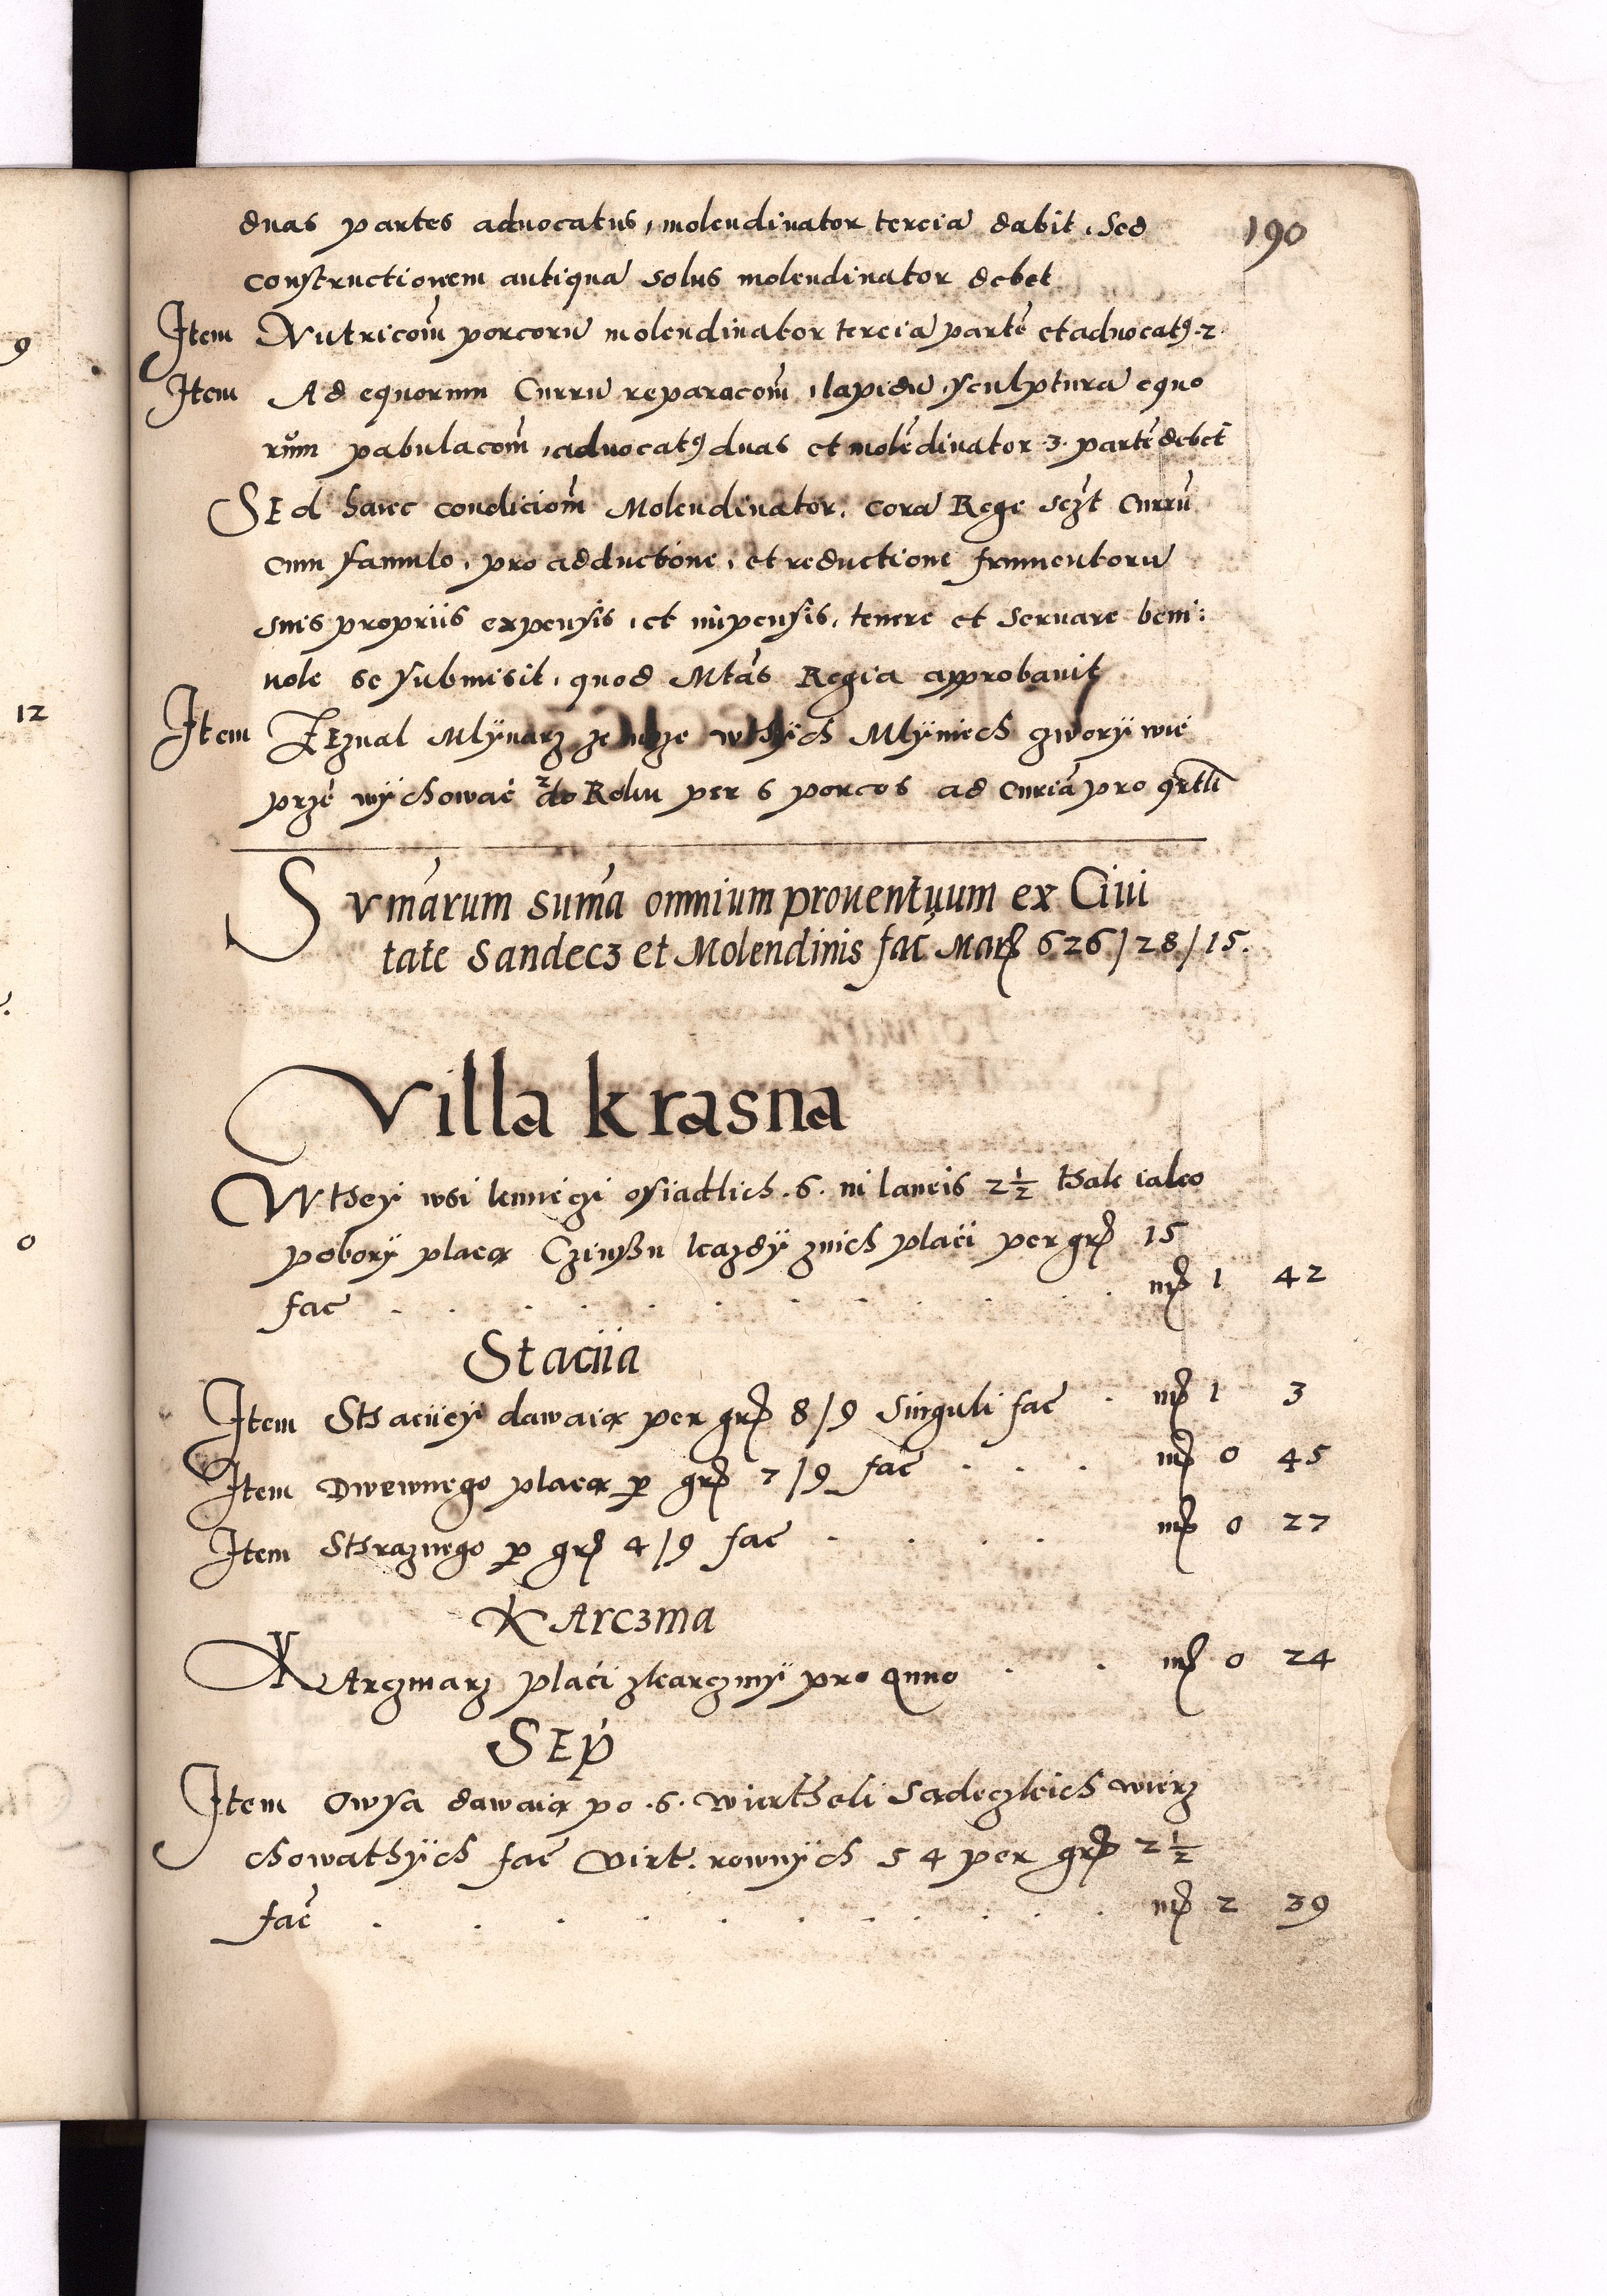 190
duas partes aduocatus, molendinator tercia dabit, Sed
constructionem antiqua solus molendinator debet
Item Nutricom̄ porcoru molendinator tercia partē et aduocatꝰ .2.
Item Ad equorum Curru reparacom̄, lapidu, sculptura equo
rům pabulacom̄, aduocatꝰ duas et molēdinator .3. partē debet
SEd hanc condiciom̄ Molendinator, cora Rege sczt Curru
cum famulo, pro adductione, et reductione frumentoru
suis propriis expensis, et impensis, tenere et seruare beni:
uole se submisit, quod Mtas Regia approbauit
Item ZEznal Mlÿnarz ze może wthÿch Mlÿniech czworÿ wie
prze wÿchowac do 2 Roku per 6 porcos ad Curiā pro
Svmārum sumā omnium prouentuum ex Ciui
tate Sandecz et Molendinis fac̄ Mar̄ 626/28/15.
Villa krasna
Wthey wsi kmieczi osiadlich .6. in laneis 2½ thak iako
poborÿ placą Czinssu kazdÿ znich placi per gr̄ 15
fac̄ . . . . . . . . . . . m̄ 1 42
Staciia
Item Sthaciiey dawaią per gr̄ 8/9 Singuli fac̄ . m̄ 1 3
Item Drwewnego placą ꝑ gr̄ 7/9 fac̄ . . . m̄ 0 45
Item Sthraznego ꝑ gr̄ 4/9 fac̄ . . . . m̄ 0 27
KArczma
KArczmarz placi zkarczmÿ pro anno . . m̄ 0 24
SEp
Item Owsa dawaią po .6. wiertheli Sądeczkich wierz
chowathÿch fac̄ virt. rownÿch 54 per gr̄ 2½
fac̄ . . . . . . . . . . . m̄ 2 39
9
12
0